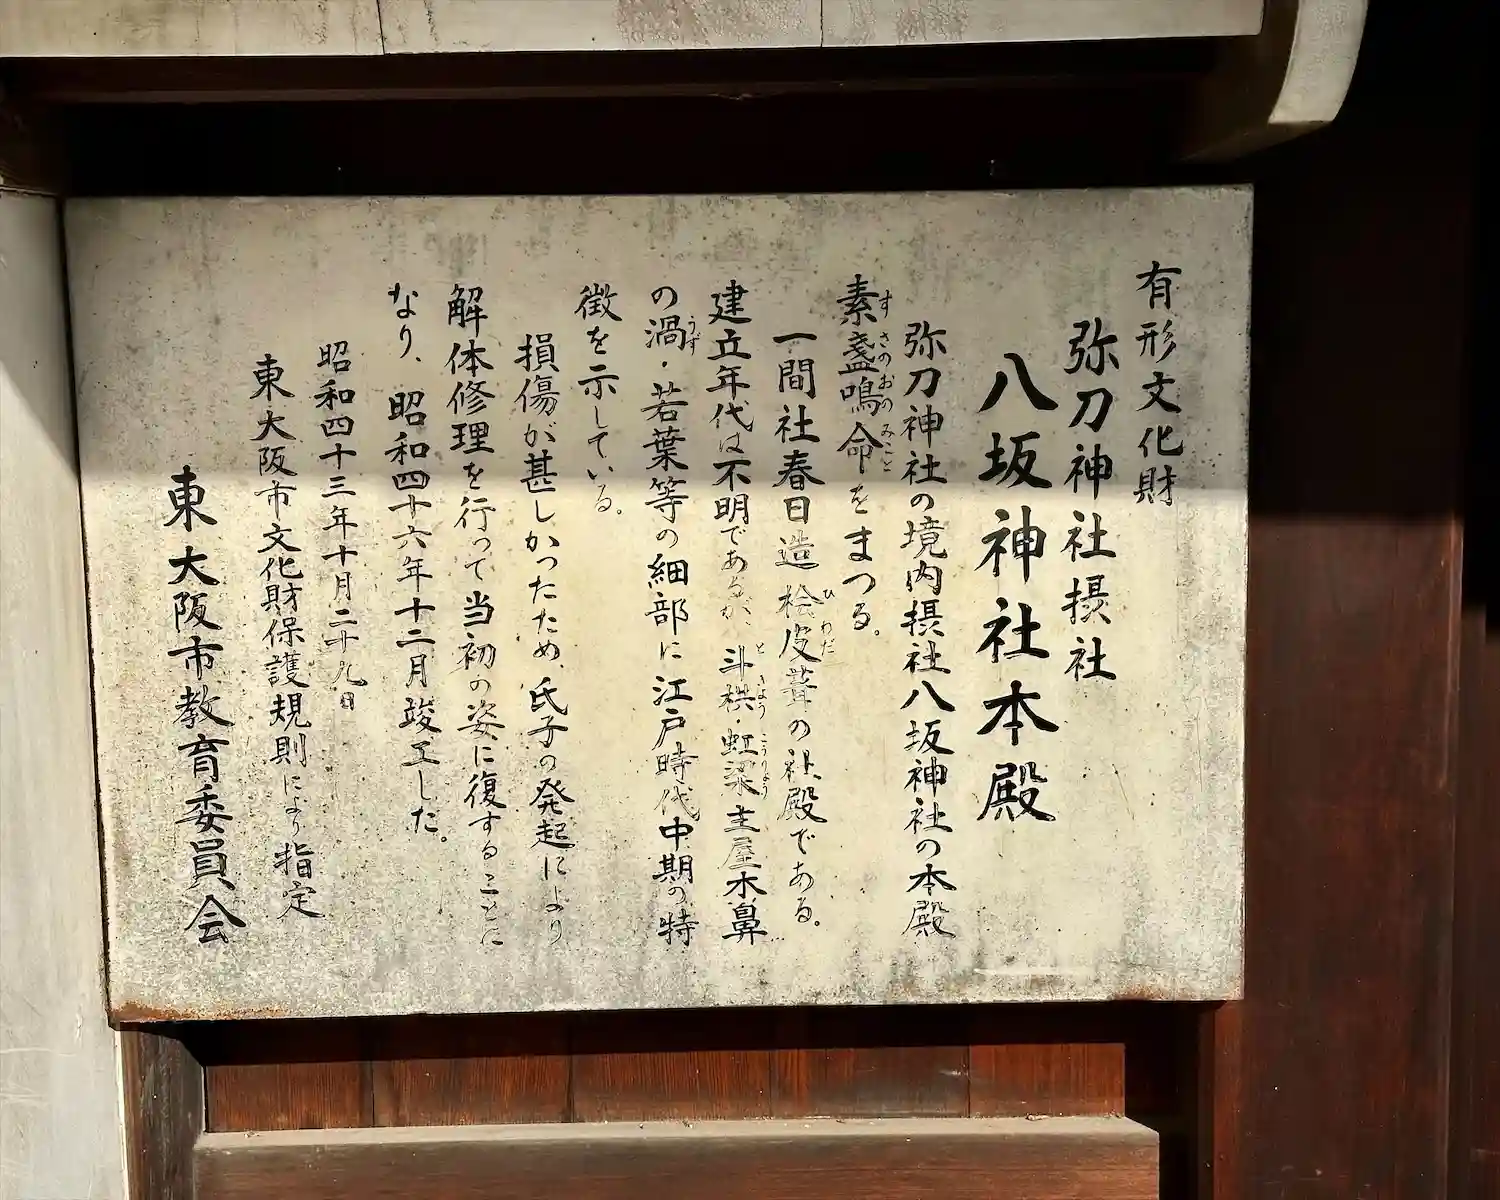 有形文化財
弥刀神社摂社
八坂神社本殿
弥刀神社の境内摂社八坂神社の本殿
素盞鳴命をまつる。
すさのおのみこと
一間社春日造桧皮葺の社殿である。
ひわだ
建立年代は不明であるが、斗栱・虹梁主屋木鼻
ときょう こうりょう
の渦・若葉等の細部に江戸時代中期の特
うず
徴を示している。
損傷が甚しかったため、氏子の発起により
解体修理を行って当初の姿に復することに
なり、昭和四十六年十二月竣工した。
昭和四十三年十月二十九日
東大阪市文化財保護規則により指定
東大阪市教育委員会